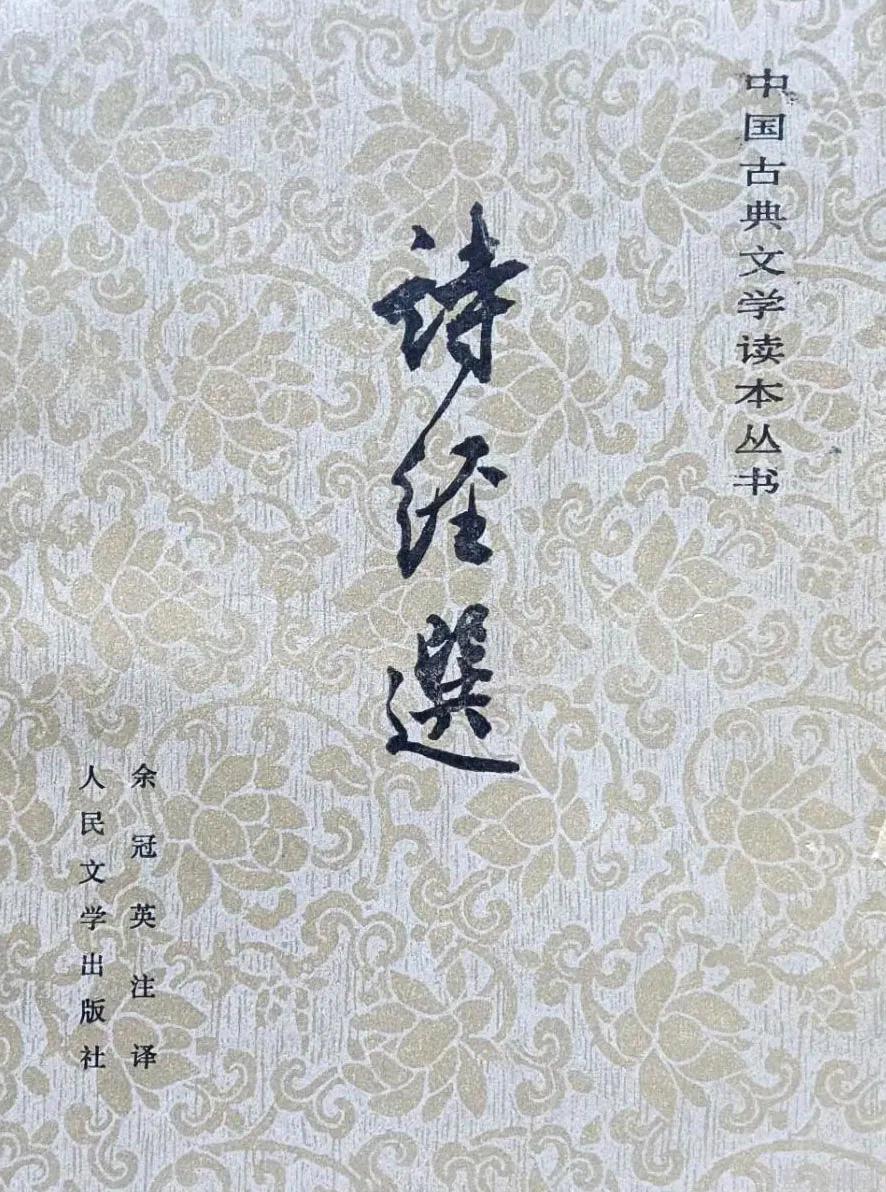 中国古典文学读本丛书
詩经選
余冠英注译
人民文学出版社